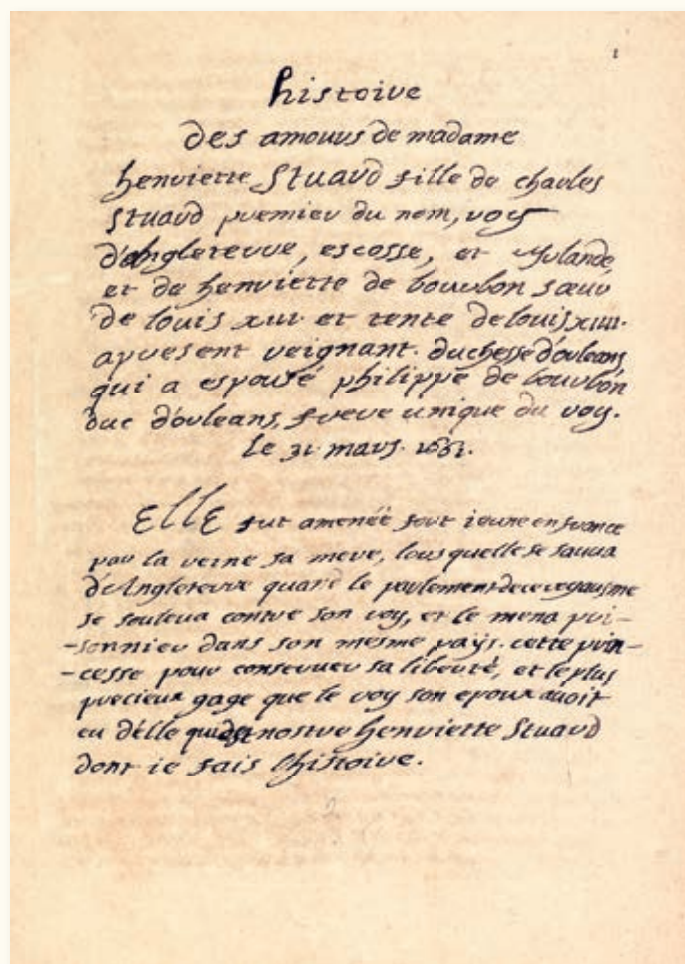 1
histoire
des amours de madame
henriette Stuard fille de charles
Stuard premier du nom, roy
d'Angleterre, escosse, et Yrlande,
et de henriette de bourbon sœur
de louis xiii. et tente de louis xiiii.
apresent reignant. duchesse d'orleans
qui a espousé philippe de bourbon
duc d'orleans, frere unique du roy.
Le 31. mars. 1661.
Elle fut amenée fort ieune en france
par la reine sa mere, lors quelle se sauua
d'Angleterre quand le parlement de ce royausme
se souleua contre son roy, et le mena pri-
-sonnier dans son mesme païs. cette prin-
-cesse pour conseruer sa liberté, et le plus
precieux gage que le roy son epoux auoit
eu d'elle qui est nostre henriette Stuard
dont ie fais l'histoire.